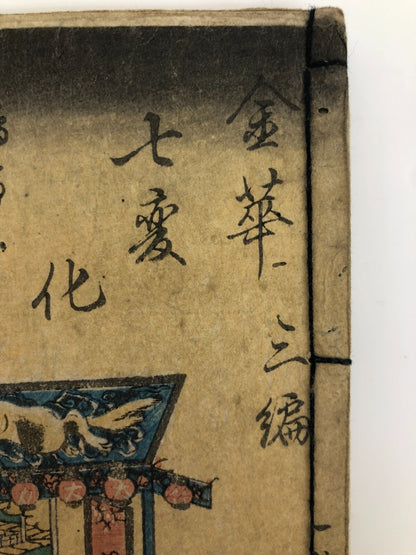 金華
三編
七変
化